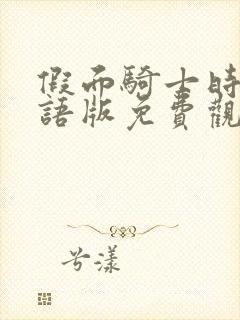 假面騎士時
語版免費觀
兮漾